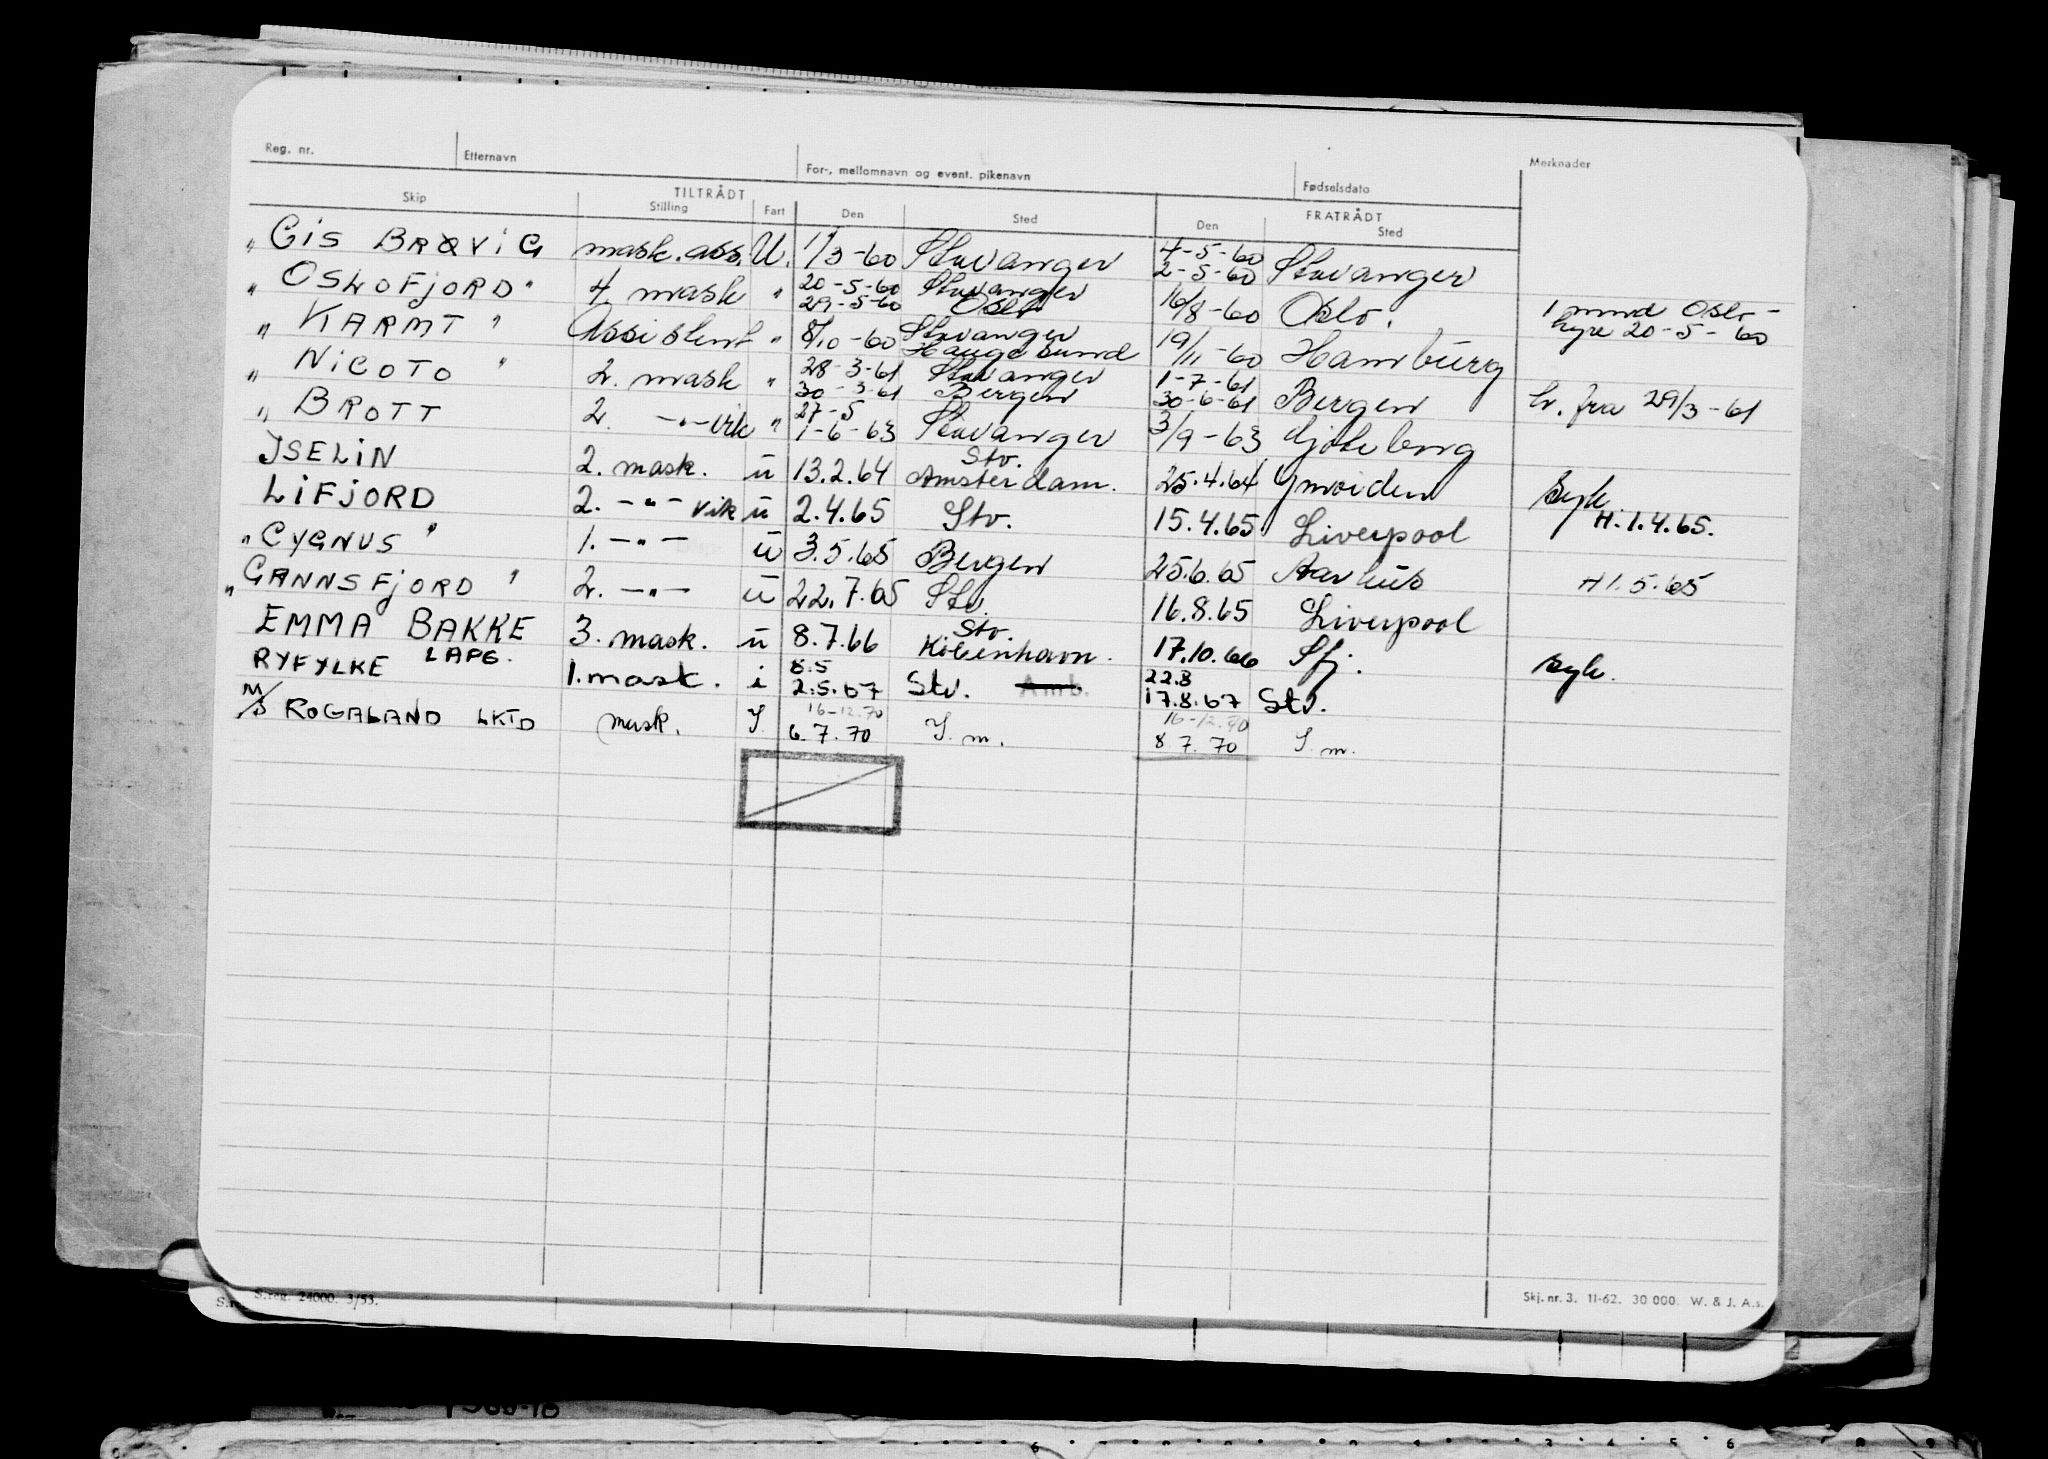 Reg. nr. Etternavn For-, mellomnavn og event. pikenavn Fødselsdato Merknader
TILTRÅDT FRATRÅDT
Skip Stilling Fart Den Sted Den Sted
" GIS BRØVIG mask. ass. U. 1/3-60 Stavanger 4-5-60 2-5-60 Stavanger
" OSLOFJORD " 4 mask " 20-5-60 Stavanger 29-5-60 Oslo 16/8-60 Oslo. 1 mnd Oslo-
hyre 20-5-60
" KARMT " Assistent " 8/10-60 Stavanger Haugesund 19/11-60 Hamburg
" NICOTO " 2. mask " 28-3-61 Stavanger 30-3-61 Bergen 1-7-61 30-6-61 Bergen h. fra 29/3-61
" BROTT 2. -"- vik " 27-5 1-6-63 Stavanger 3/9-63 Gjøteborg
ISELIN 2. mask. u 13.2.64 Stv. Amsterdam. 25.4.64 Ymoiden Syk
LIFJORD 2. -"- vik u 2.4.65 Stv. 15.4.65 Liverpool H. 1.4.65.
" CYGNUS " 1. -"- u 3.5.65 Bergen 25.6.65 Aarhus H 1.5.65
" GANNSFJORD " 2. -"- u 22.7.65 Stv. 16.8.65 Liverpool
EMMA BAKKE 3. mask. u 8.7.66 Stv. København. 17.10.66 Sfj. syk.
RYFYLKE LAPG. 1. mask. i 8.5 2.5.67 Stv. Amb. 22.8 17.8.67 Stv.
M/S ROGALAND LKTD mask. I. 16-12.70 6.7.70 I. m. 16-12.70 8 7. 70 I. m.
S.reg. 24000. 3/53.
Skj. nr. 3. 11-62. 30 000. W. & J. A.s.